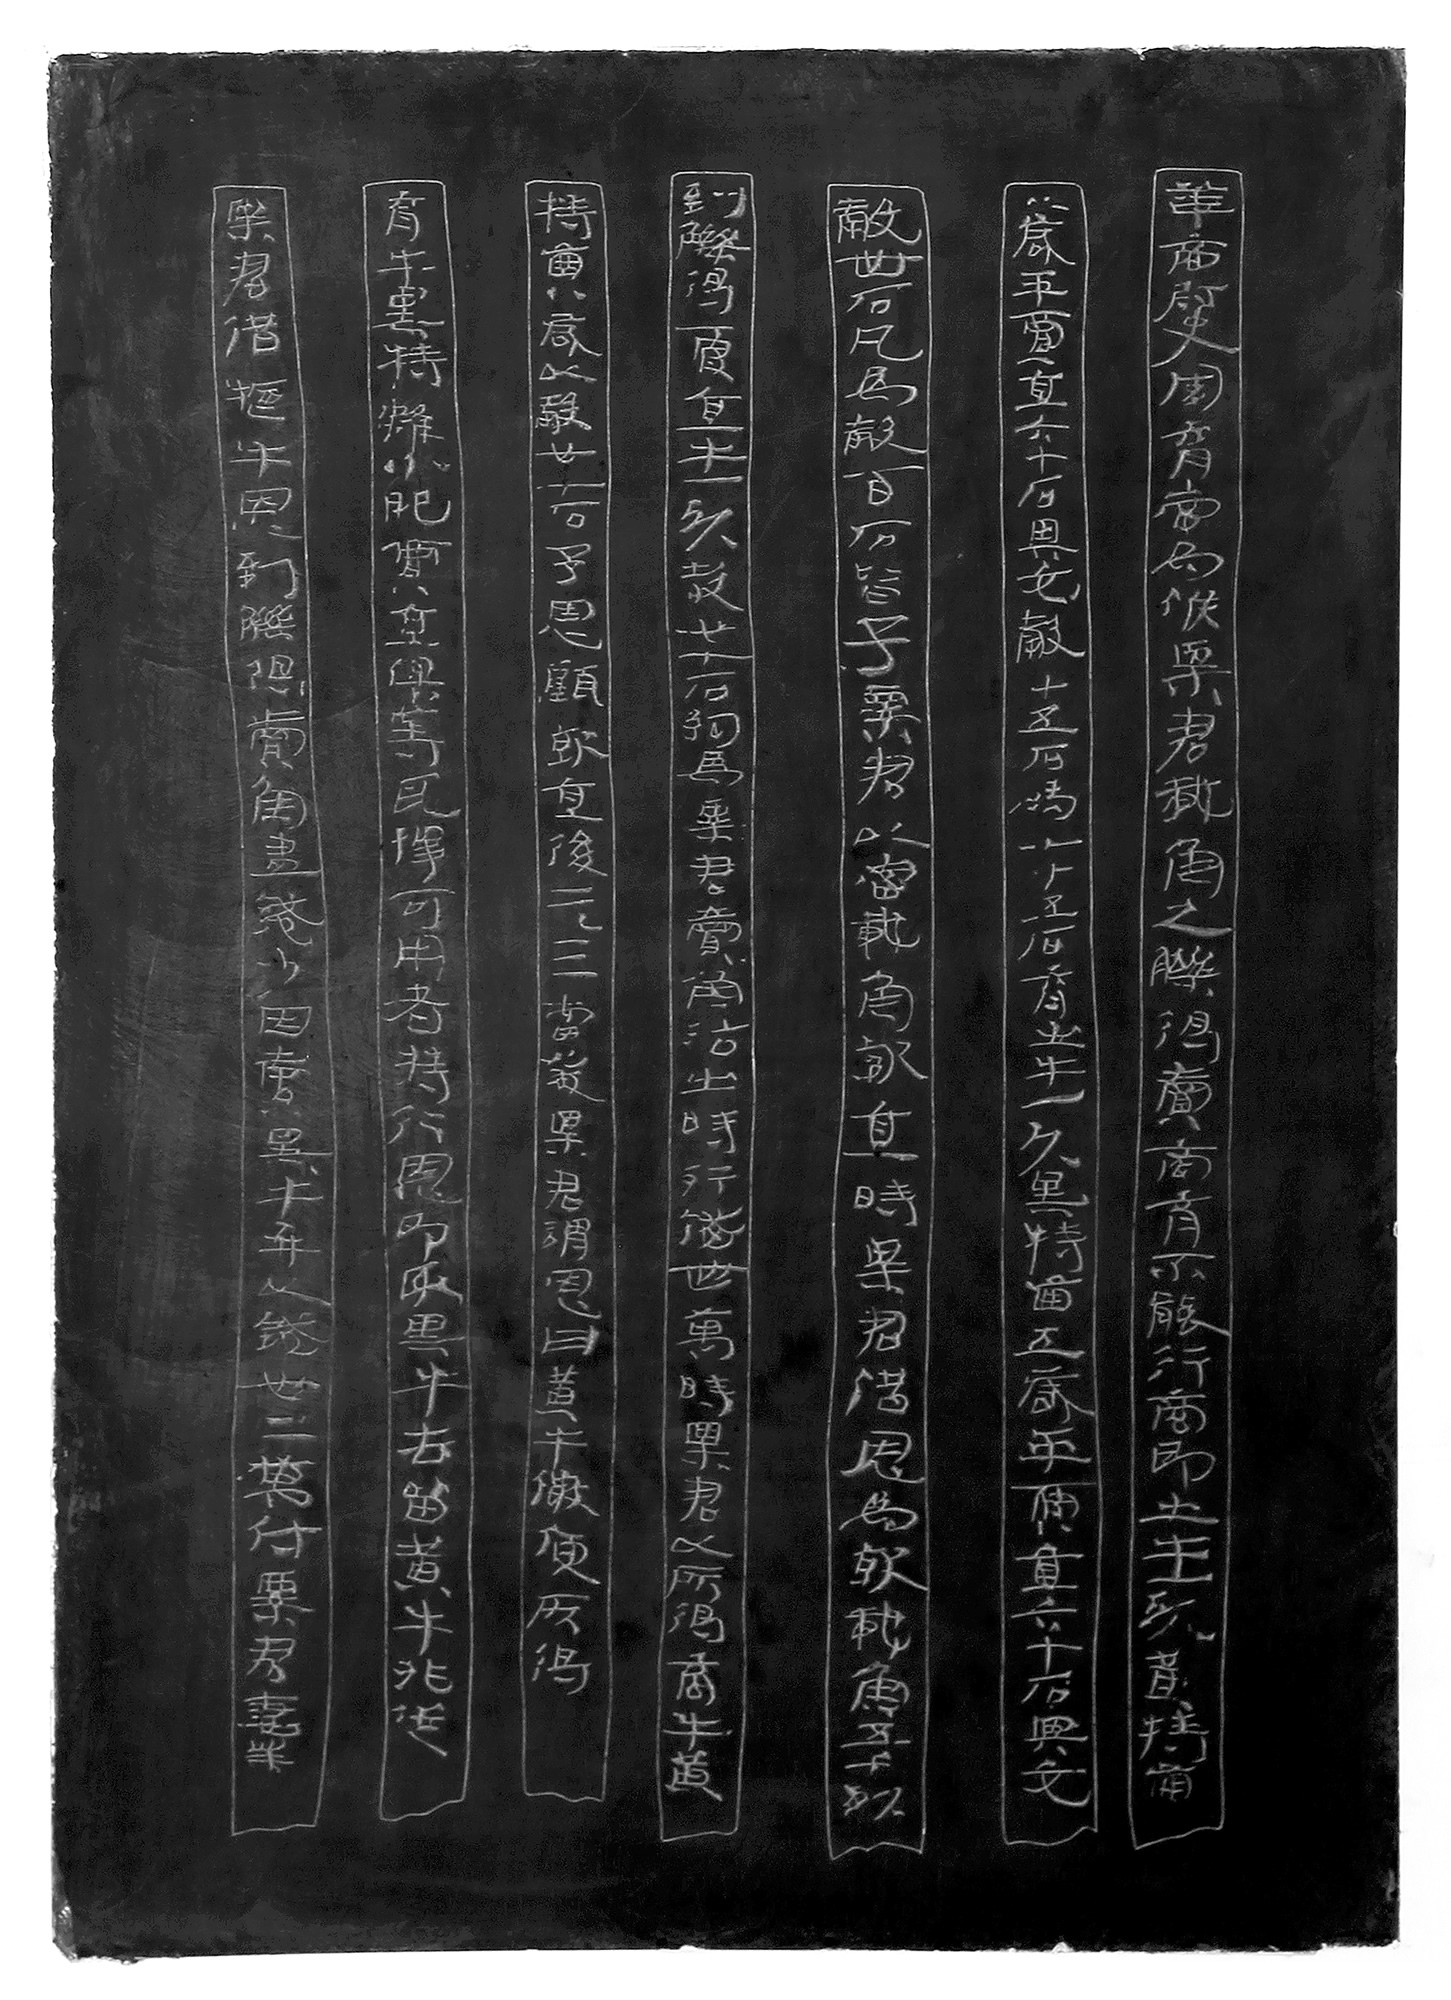 華商尉史周育當為候粟君載魚之觻得賣商育不能行商即出牛一頭黃特齒
八歲平賈直六十石與交穀十五石為七十五石育出牛一頭黑特齒五歲平賈直六十石與交
穀卌石凡為穀百石皆予粟君以當載魚就直時粟君借恩為就載魚五千頭
到觻得賈直牛一頭穀廿七石約為粟君賣魚沽出時行錢卌萬時粟君以所得商牛黃
特齒八歲以穀廿七石予恩顧就直後二三當發粟君謂恩曰黃牛微庾所得
育牛黑特雖小肥賈直俱等耳擇可用者持行恩即取黑牛去留黃牛非從
粟君借牛恩到觻得賣魚盡錢少因賣黑牛并以錢卅二萬付粟君妻業